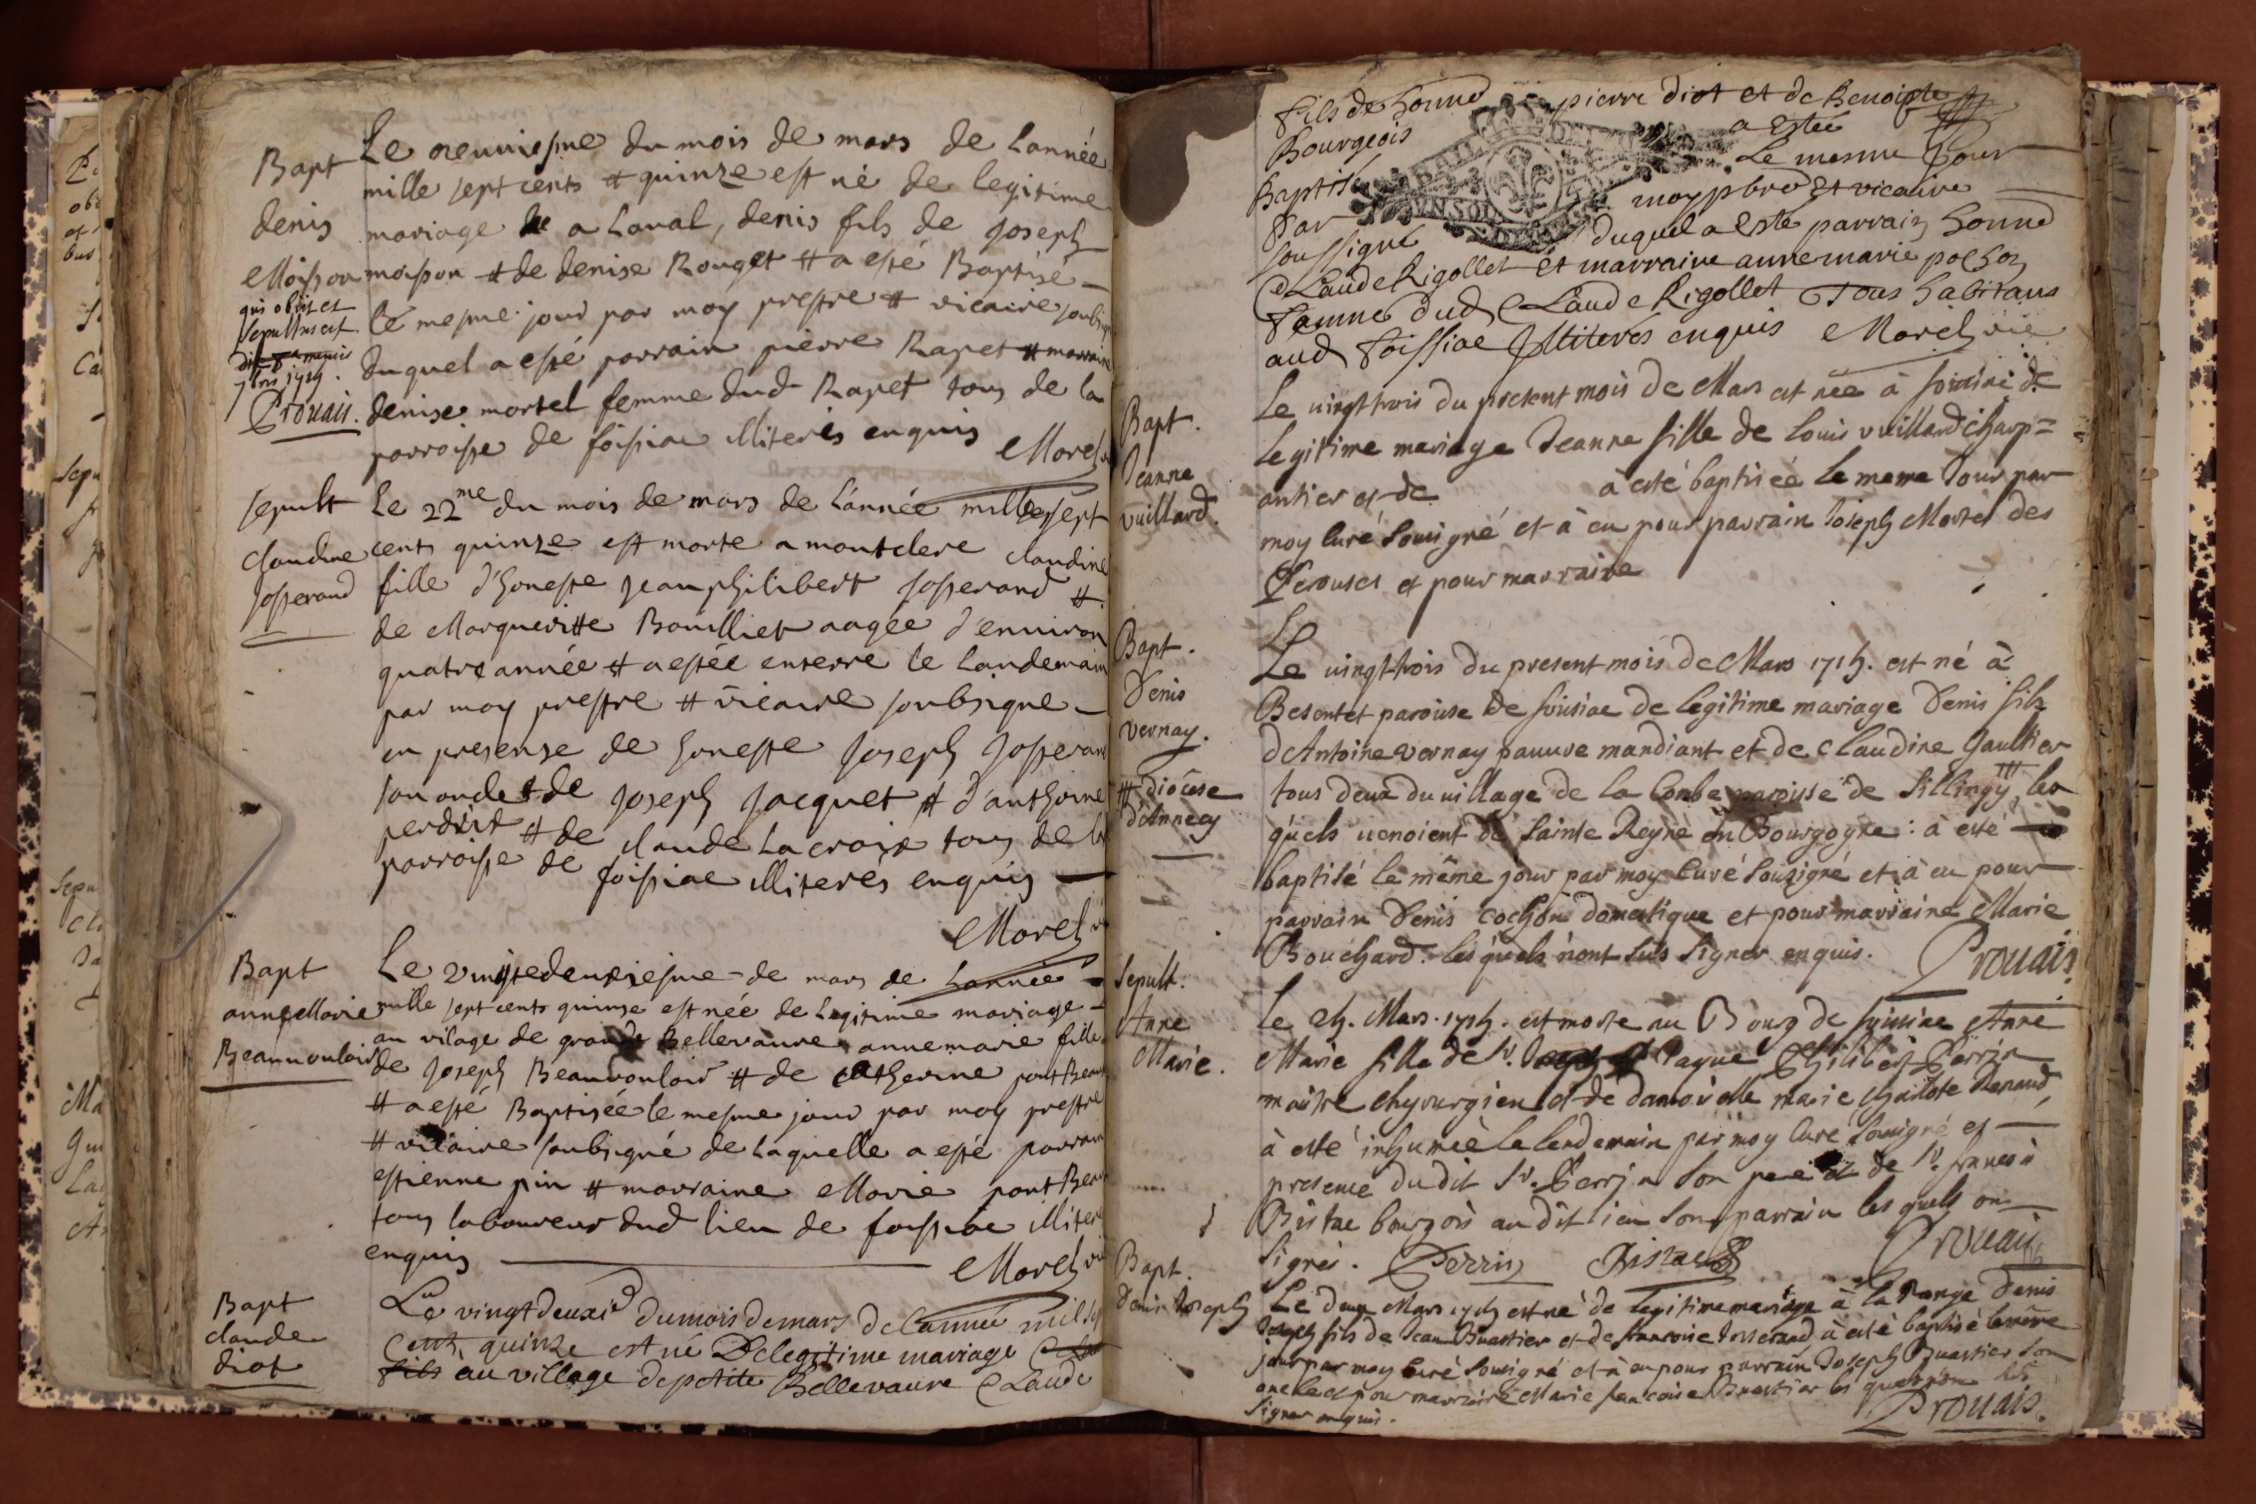 Bapt
denis
Moisson
qui obiit et
sepultus est
7bris 1715.
Prouais.
Le neuviesme du mois de mars de Lannée
mille sept cents et quinze est né de legitime
mariage a Laval, denis fils de Joseph
moisson et de denise Rouget et a esté Baptisé
le mesme jour par moy prestre et vicaire soubsigné
duquel a esté parrain pierre Rapet et marraine
denise mortel femme dud Rapet tous de la
parroisse de foissiac illiterés enquis
Morel
sepult
claudine
josserand
Le 22me du mois de mars de L'année mille sept
cents quinze est morte a montclere claudine
fille d'honeste jean philibert josserand et
de Margueritte Bouilliet aagée d'environ
quatre année et a estée enterre le landemain
par moy prestre et vicaire soubsigne
en presense de honeste joseph josserand
son oncle et de joseph jacquet et d'anthoine
perdrit et de claude Lacroix tous de la
parroisse de foissiac illiterés enquis
Morel
Bapt
anne Marie
Beauvouloir
Le vingtedeuxiesme de mars de Lannée
mille sept cents quinse est née de Legitime mariage
au vilage de grande Bellevavre annemarie fille
de joseph Beauvouloir et de catherine pont Beau
et a esté Baptisée le mesme jour par moy prestre
et vicaire soubsigné de laquelle a esté parrain
estienne pin et marraine Marie pont Beau
tous laboureur dud lieu de foissiac illiterés
enquis
Morel
Bapt
claude
diot
Le vingtdeuxie du mois de mars de Lannée mil sept
cents quinze est né De legitime mariage
fils au village de petite Bellevavre Claude
fils de honne pierre diot et de Benoiste
Bourgeois a Esté
Baptisé Le mesme Jour
Par moy pbre Et vicaire
soussigné duquel a Esté parrain honne
Claude Rigollet Et marraine anne marie pochon
femme dud Claude Rigollet Tous habitans
aud foissiac Illiterés enquis Morel vic
Bapt.
Jeanne
vuillard.
Le vingttrois du present mois de Mars est née à foissiac de
Legitime mariage Jeanne fille de Louis vuillard charp=
antier et de à esté baptisée le meme Jour par
moy Curé Sousigné et à eu pour parrain Joseph Mortel des
Perouses et pour marraine
Bapt.
Denis
vernay.
Le vingttrois du present mois de Mars 1715. est né à
Besentet paroisse de foissiac de legitime mariage Denis fils
d'Antoine vernay pauvre mandiant et de Claudine Gaultier
tous deux du village de la Combe paroisse de Sillingy les
# diocese
d'Annecy
quels venoient de Sainte Reyne en Bourgogne : à esté
baptisé le même jour par moy Curé Sousigné et à eu pour
parrain Denis cochon domestique et pour marraine Marie
Bouchard. les quels n'ont sus signer enquis. Prouais
Sepult.
Anne
Marie.
Le 25. Mars. 1715. est morte au Bourg de foissiac Anne
Marie fille de Sr. Jaque Philibert Perrin
maitre chyrurgien et de damoiselle marie charlote Renaud,
à esté inhumée le lendemain par moy Curé Sousigné et
presence dudit Sr. Perrin son pere et de Sr. francois
Bistac bourgois audit lieu son parrain les quels on
signés. Perrin Bistac Prouais
Bapt.
Denis Joseph
Le deux Mars 1715 est né de legitime mariage à la Range Denis
Joseph fils de Jean Buastier et de francoise Josserand à esté baptisé le même
jour par moy Curé Sousigné et à eu pour parrain Joseph Buastier son
oncle et pour marraine Marie francoise Buastier les quels non sus
signer enquis. Prouais.